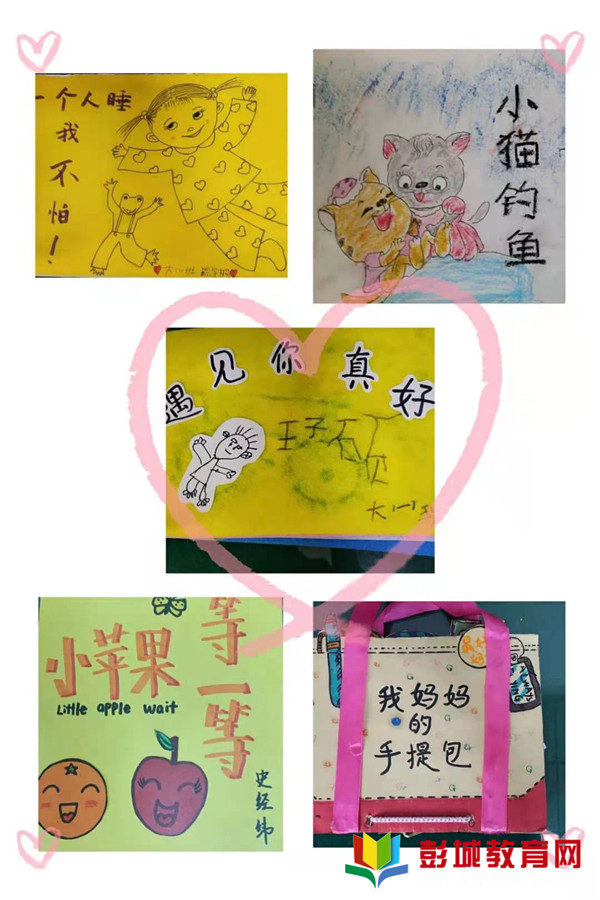 一个人睡
我
不
怕！
小猫钓鱼
遇见你真好
王子硕
大(一)
小苹果
Little apple wait
等一等
史经纬
我妈妈
的
手提包
彭城教育网